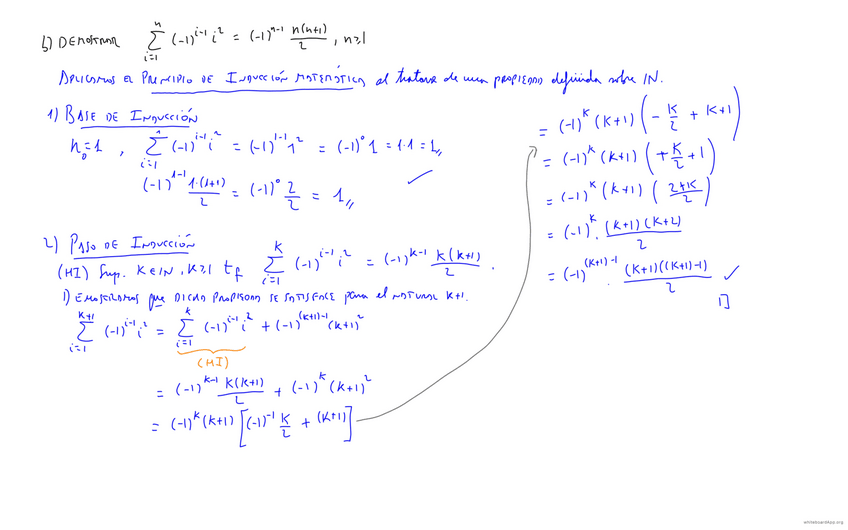 b) DEMOSTRAR \sum_{i=1}^{n} (-1)^{i-1} i^2 = (-1)^{n-1} \frac{n(n+1)}{2}, n≥1
APLICAMOS EL PRINCIPIO DE INDUCCIÓN MATEMÁTICA al tratarse de una PROPIEDAD definida sobre IN.
1) BASE DE INDUCCIÓN
n_0=1, \sum_{i=1}^{1} (-1)^{i-1} i^2 = (-1)^{1-1} 1^2 = (-1)^0 1 = 1·1 = 1,,
(-1)^{1-1} \frac{1·(1+1)}{2} = (-1)^0 \frac{2}{2} = 1,, ✓
2) PASO DE INDUCCIÓN
(HI) Sup. K∈IN, K≥1 tq \sum_{i=1}^{K} (-1)^{i-1} i^2 = (-1)^{K-1} \frac{K(K+1)}{2}.
DEMOSTRAMOS que DICHA PROPIEDAD SE SATISFACE para el NATURAL K+1.
\sum_{i=1}^{K+1} (-1)^{i-1} i^2 = \sum_{i=1}^{K} (-1)^{i-1} i^2 + (-1)^{(K+1)-1} (K+1)^2
(HI)
= (-1)^{K-1} \frac{K(K+1)}{2} + (-1)^K (K+1)^2
= (-1)^K (K+1) [(-1)^{-1} \frac{K}{2} + (K+1)]
= (-1)^K (K+1) (-\frac{K}{2} + K+1)
= (-1)^K (K+1) (+\frac{K}{2} + 1)
= (-1)^K (K+1) (\frac{2+K}{2})
= (-1)^K · \frac{(K+1)(K+2)}{2}
= (-1)^{(K+1)-1} · \frac{(K+1)((K+1)-1)}{2} ✓
□
whiteboardapp.org